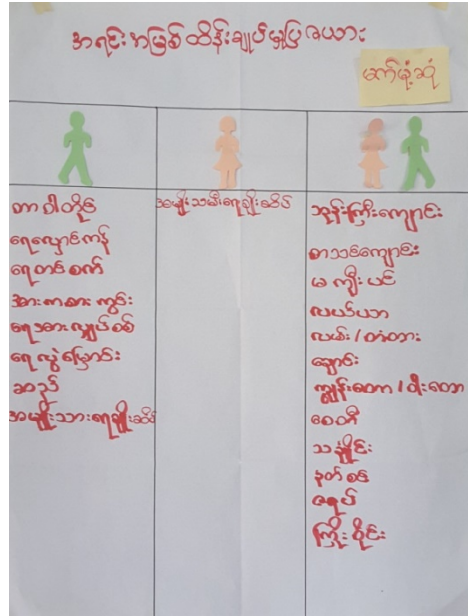 အရင်းအမြစ်ထိန်းချုပ်မှုပြဇယား
မက်မုံ့ဆုံ
တာဝါတိုင်
ရေလှောင်ကန်
ရေတင်စက်
အားကစားကွင်း
ရေအားလျှပ်စစ်
ရေလွှဲမြောင်း
ဆည်
အမျိုးသားရေချိုးဆိပ်
အမျိုးသမီးရေချိုးဆိပ်
ဘုန်းကြီးကျောင်း
စာသင်ကျောင်း
မကျီးပင်
လယ်ယာ
လမ်း/တံတား
ချောင်း
ကျွန်းတော/ဝါးတော
စေတီ
သင်္ချိုင်း
နတ်စင်
ဇရပ်
ကြိုးဝိုင်း